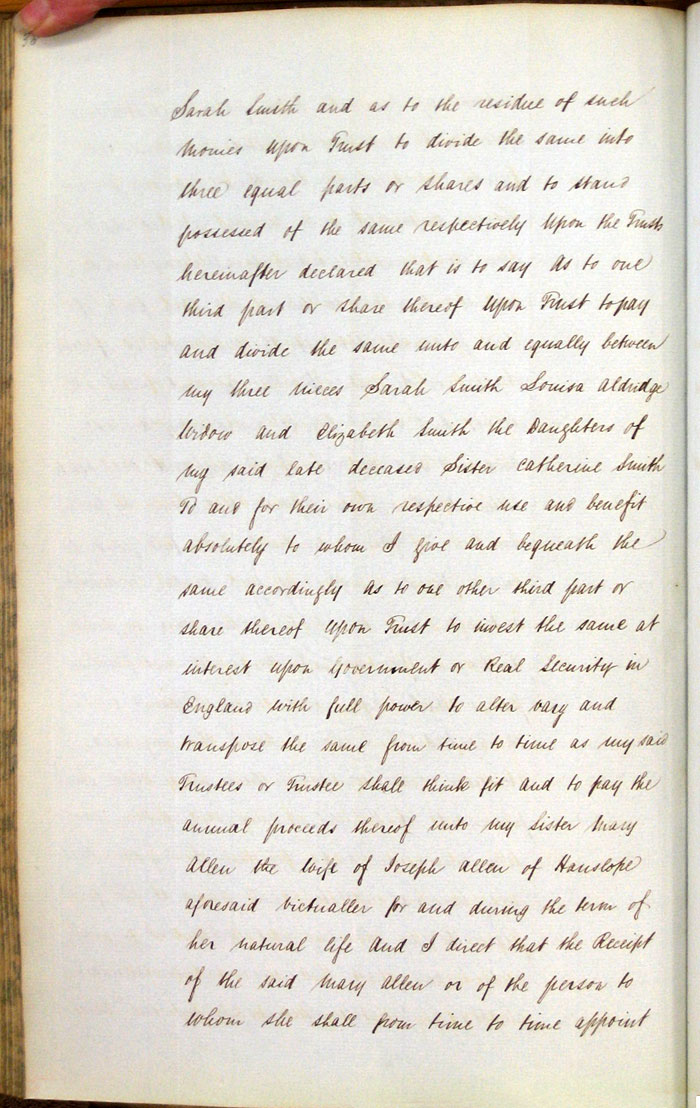 Sarah Smith and as to the residue of such
monies upon Trust to divide the same into
three equal parts or shares and to stand
possessed of the same respectively Upon the Trusts
hereinafter declared that is to say As to one
third part or share thereof Upon Trust to pay
and divide the same unto and equally between
my three nieces Sarah Smith Louisa Aldridge
Widow and Elizabeth Smith the Daughters of
my said late deceased Sister Catherine Smith
To and for their own respective use and benefit
absolutely to whom I give and bequeath the
same accordingly As to one other third part or
share thereof Upon Trust to invest the same at
interest upon Government or Real Security in
England with full power to alter vary and
transpose the same from time to time as my said
Trustees or Trustee shall think fit and to pay the
annual proceeds thereof unto my Sister Mary
Allen the Wife of Joseph Allen of Hanslope
aforesaid Victualler for and during the term of
her natural life And I direct that the Receipt
of the said Mary Allen or of the person to
whom she shall from time to time appoint